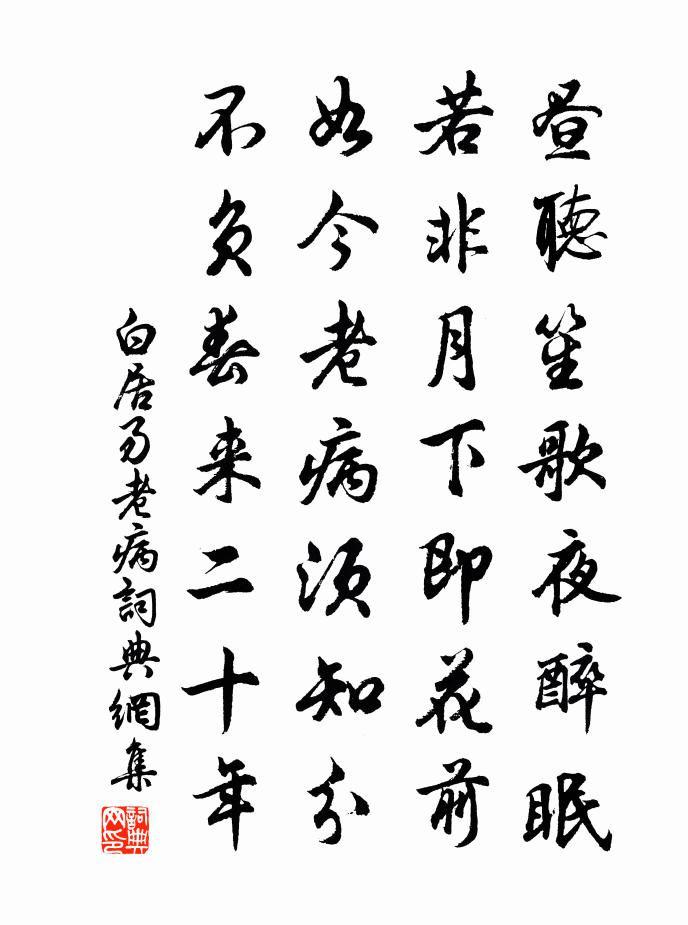 昼聽笙歌夜醉眠
若非月下即花前
如今老病須知分
不負春来二十年
白居易老病詞典網集
詞典网印